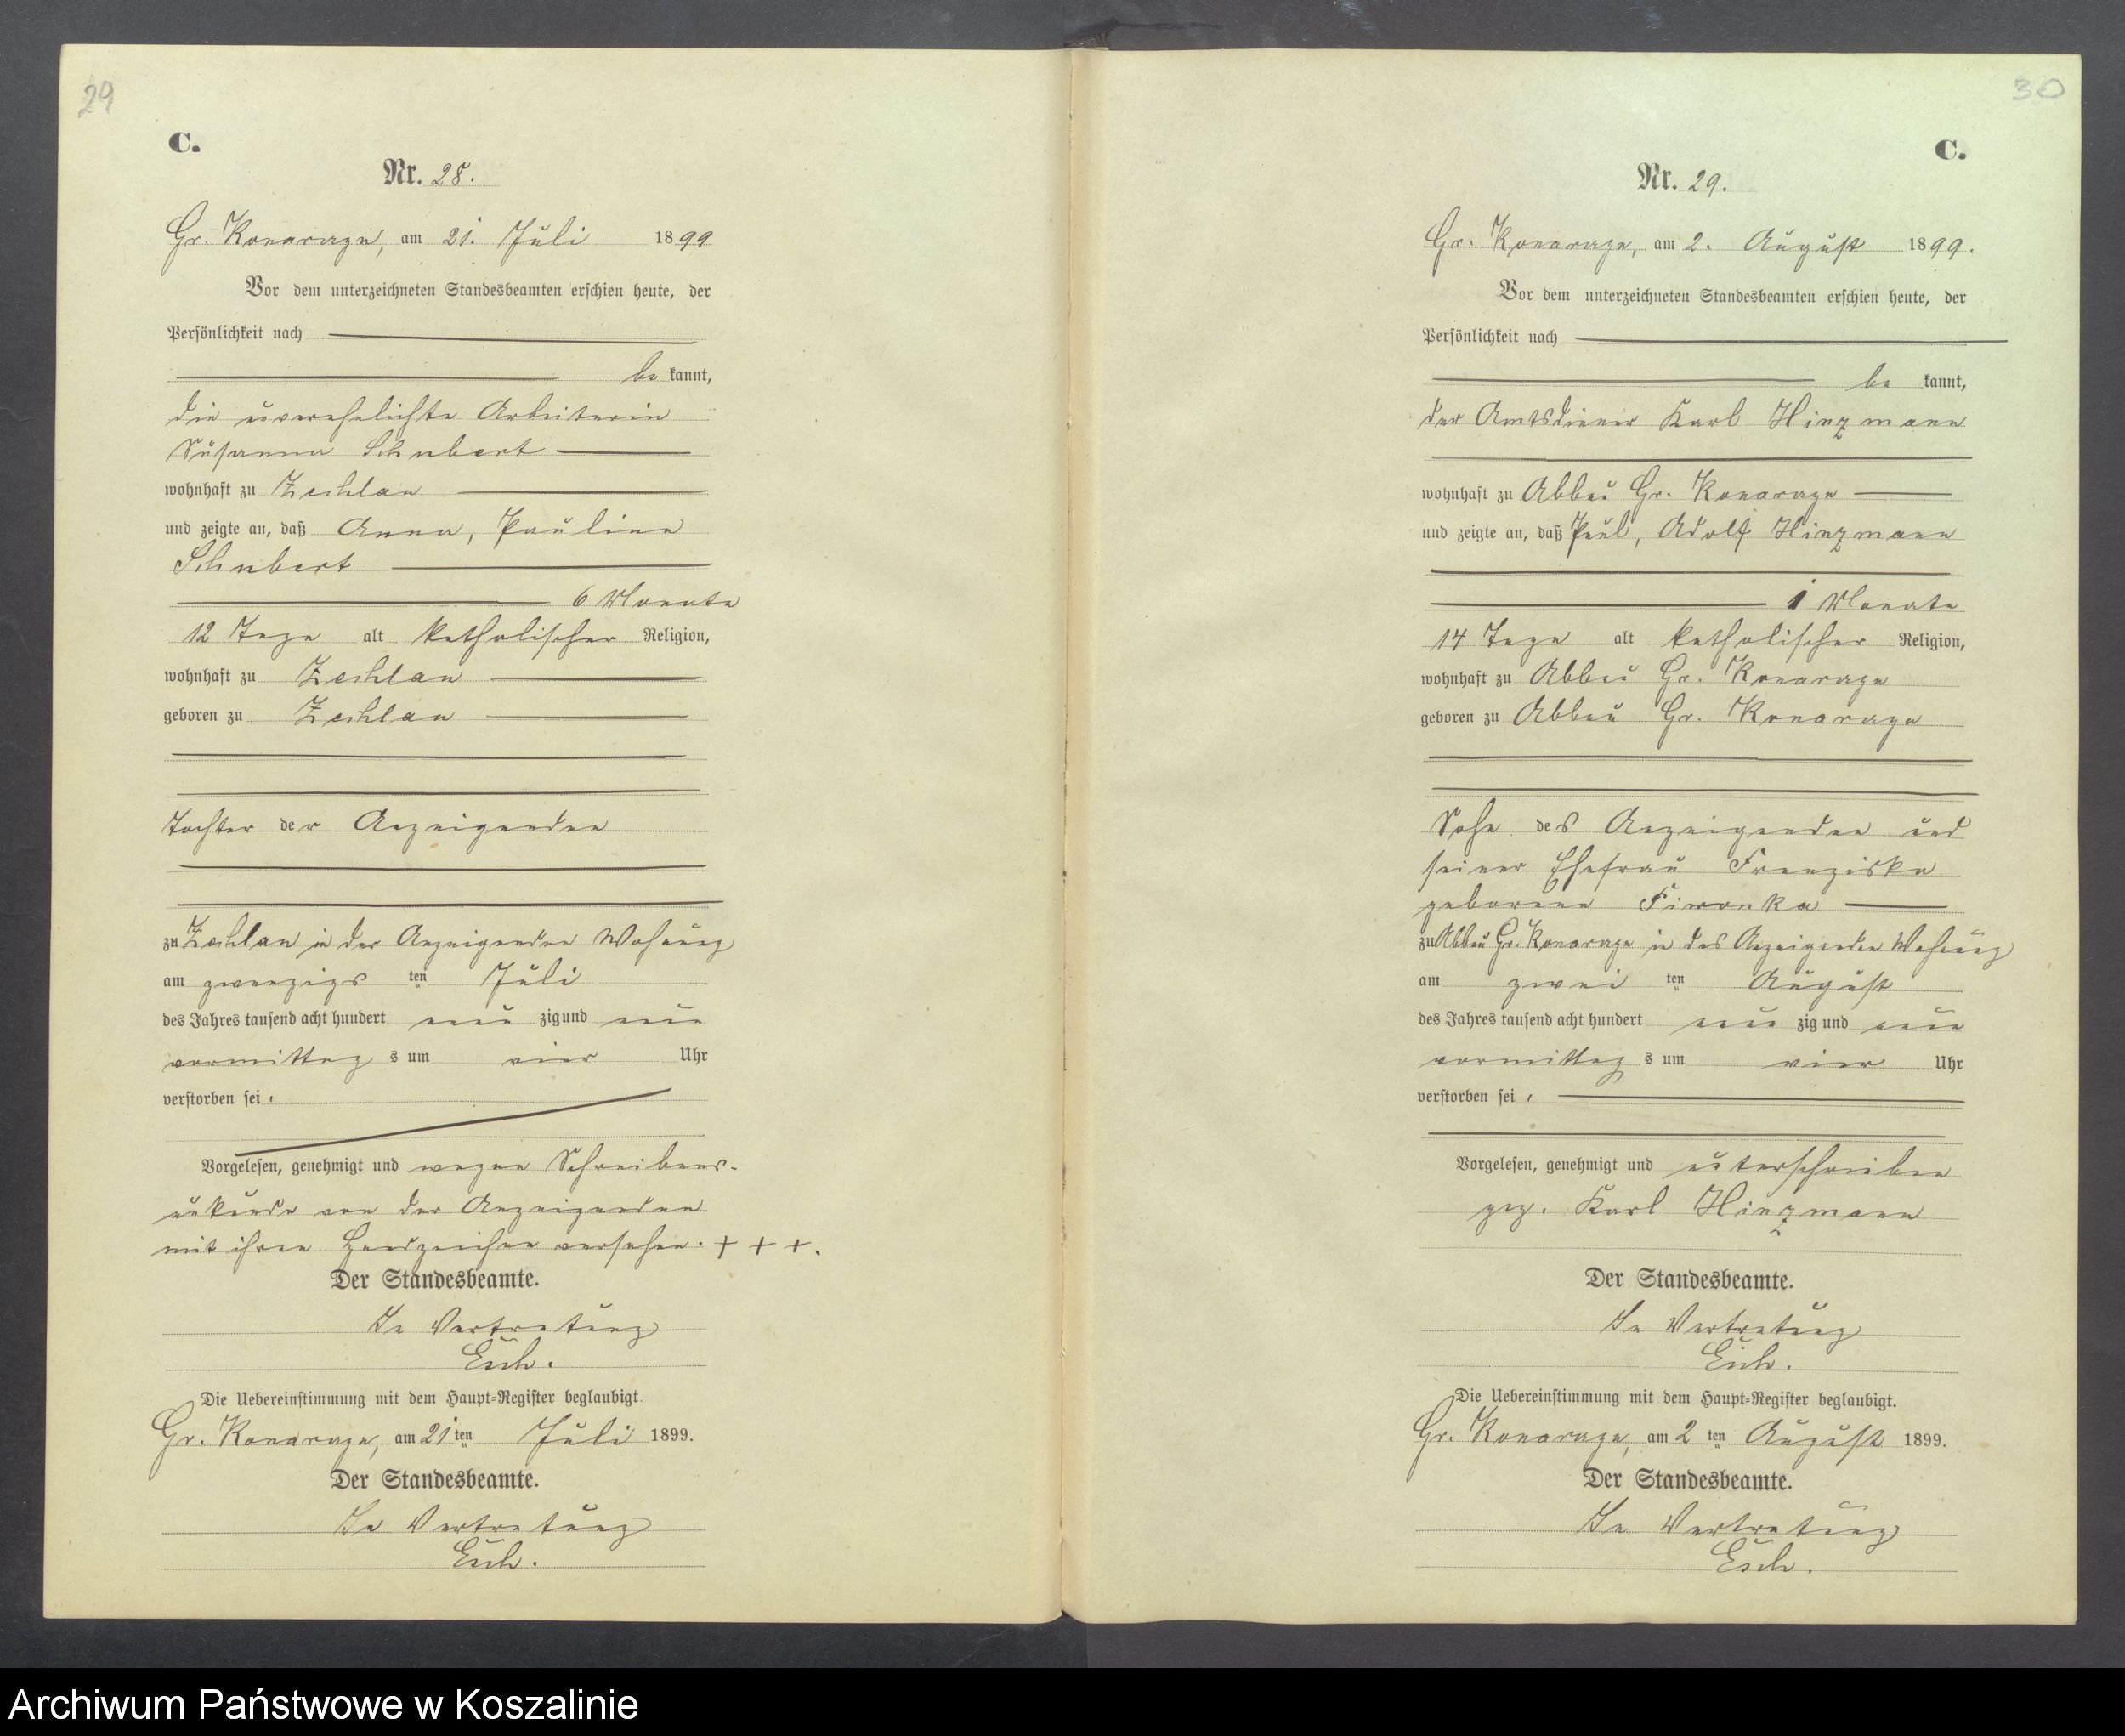 29
C.
Nr. 28.
Gr. Konarczyn, am 21. Juli 1899
Vor dem unterzeichneten Standesbeamten erschien heute, der
Persönlichkeit nach
be kannt,
die unverehelichte Arbeiterin
Susanna Schubert
wohnhaft zu Zechlau
und zeigte an, daß Anna, Pauline
Schubert
6 Monate
12 Tage alt katholischer Religion,
wohnhaft zu Zechlau
geboren zu Zechlau
Tochter der Anzeigenden
zu Zechlau in der Anzeigenden Wohnung
am zwanzigs ten Juli
des Jahres tausend acht hundert neun zig und neun
vormittag s um vier Uhr
verstorben sei.
Vorgelesen, genehmigt und wegen Schreibens-
unkunde von der Anzeigenden
mit ihren Handzeichen versehen. + + +.
Der Standesbeamte.
In Vertretung
Esch.
Die Uebereinstimmung mit dem Haupt-Register beglaubigt.
Gr. Konarczyn, am 21 ten Juli 1899.
Der Standesbeamte.
In Vertretung
Esch.
30
C.
Nr. 29.
Gr. Konarczyn, am 2. August 1899.
Vor dem unterzeichneten Standesbeamten erschien heute, der
Persönlichkeit nach
be kannt,
der Amtsdiener Karl Hinzmann
wohnhaft zu Abbau Gr. Konarczyn
und zeigte an, daß Paul, Adolf Hinzmann
1 Monate
14 Tage alt katholischer Religion,
wohnhaft zu Abbau Gr. Konarczyn
geboren zu Abbau Gr. Konarczyn
Sohn des Anzeigenden und
seiner Ehefrau Franziska
geborene
zu Abbau Gr. Konarczyn in des Anzeigenden Wohnung
am zwei ten August
des Jahres tausend acht hundert neun zig und neun
vormittag s um vier Uhr
verstorben sei.
Vorgelesen, genehmigt und unterschrieben
gez. Karl Hinzmann
Der Standesbeamte.
In Vertretung
Esch.
Die Uebereinstimmung mit dem Haupt-Register beglaubigt.
Gr. Konarczyn, am 2 ten August 1899.
Der Standesbeamte.
In Vertretung
Esch.
Archiwum Państwowe w Koszalinie